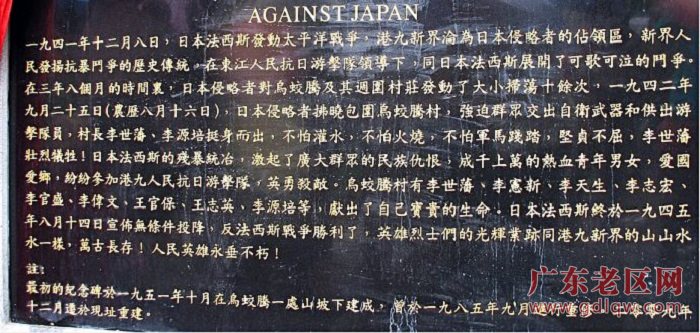 AGAINST JAPAN
一九四一年十二月八日，日本法西斯發動太平洋戰爭，港九新界淪為日本侵略者的佔領區，新界人
民發揚抗暴鬥爭的歷史傳統，在東江人民抗日游擊隊領導下，同日本法西斯展開了可歌可泣的鬥爭。
在三年八個月的時間裏，日本侵略者對烏蛟騰及其週圍村莊發動了大小掃蕩十餘次，一九四二年
九月二十五日(農曆八月十六日)，日本侵略者拂曉包圍烏蛟騰村，強迫群眾交出自衛武器和供出游
擊隊員，村長李世藩、李源培挺身而出，不怕灌水，不怕火燒，不怕軍馬踐踏，堅貞不屈，李世藩
壯烈犧牲！日本法西斯的殘暴統治，激起了廣大群眾的民族仇恨，成千上萬的熱血青年男女，愛國
愛鄉，紛紛參加港九人民抗日游擊隊，英勇殺敵。烏蛟騰村有李世藩、李憲新、李天生、李志宏、
李官盛、李偉文、王官保、王志英、李源培等，獻出了自己寶貴的生命。日本法西斯終於一九四五
年八月十四日宣佈無條件投降，反法西斯戰爭勝利了，英雄烈士們的光輝業跡同港九新界的山山水
水一樣，萬古長存！人民英雄永垂不朽！
註：
最初的紀念碑於一九五一年十月在烏蛟騰一處山坡下建成，曾於一九八五年九月進行重修，二零零九年
十二月遷於現址重建。
广东老区网
www.gdlqw.com